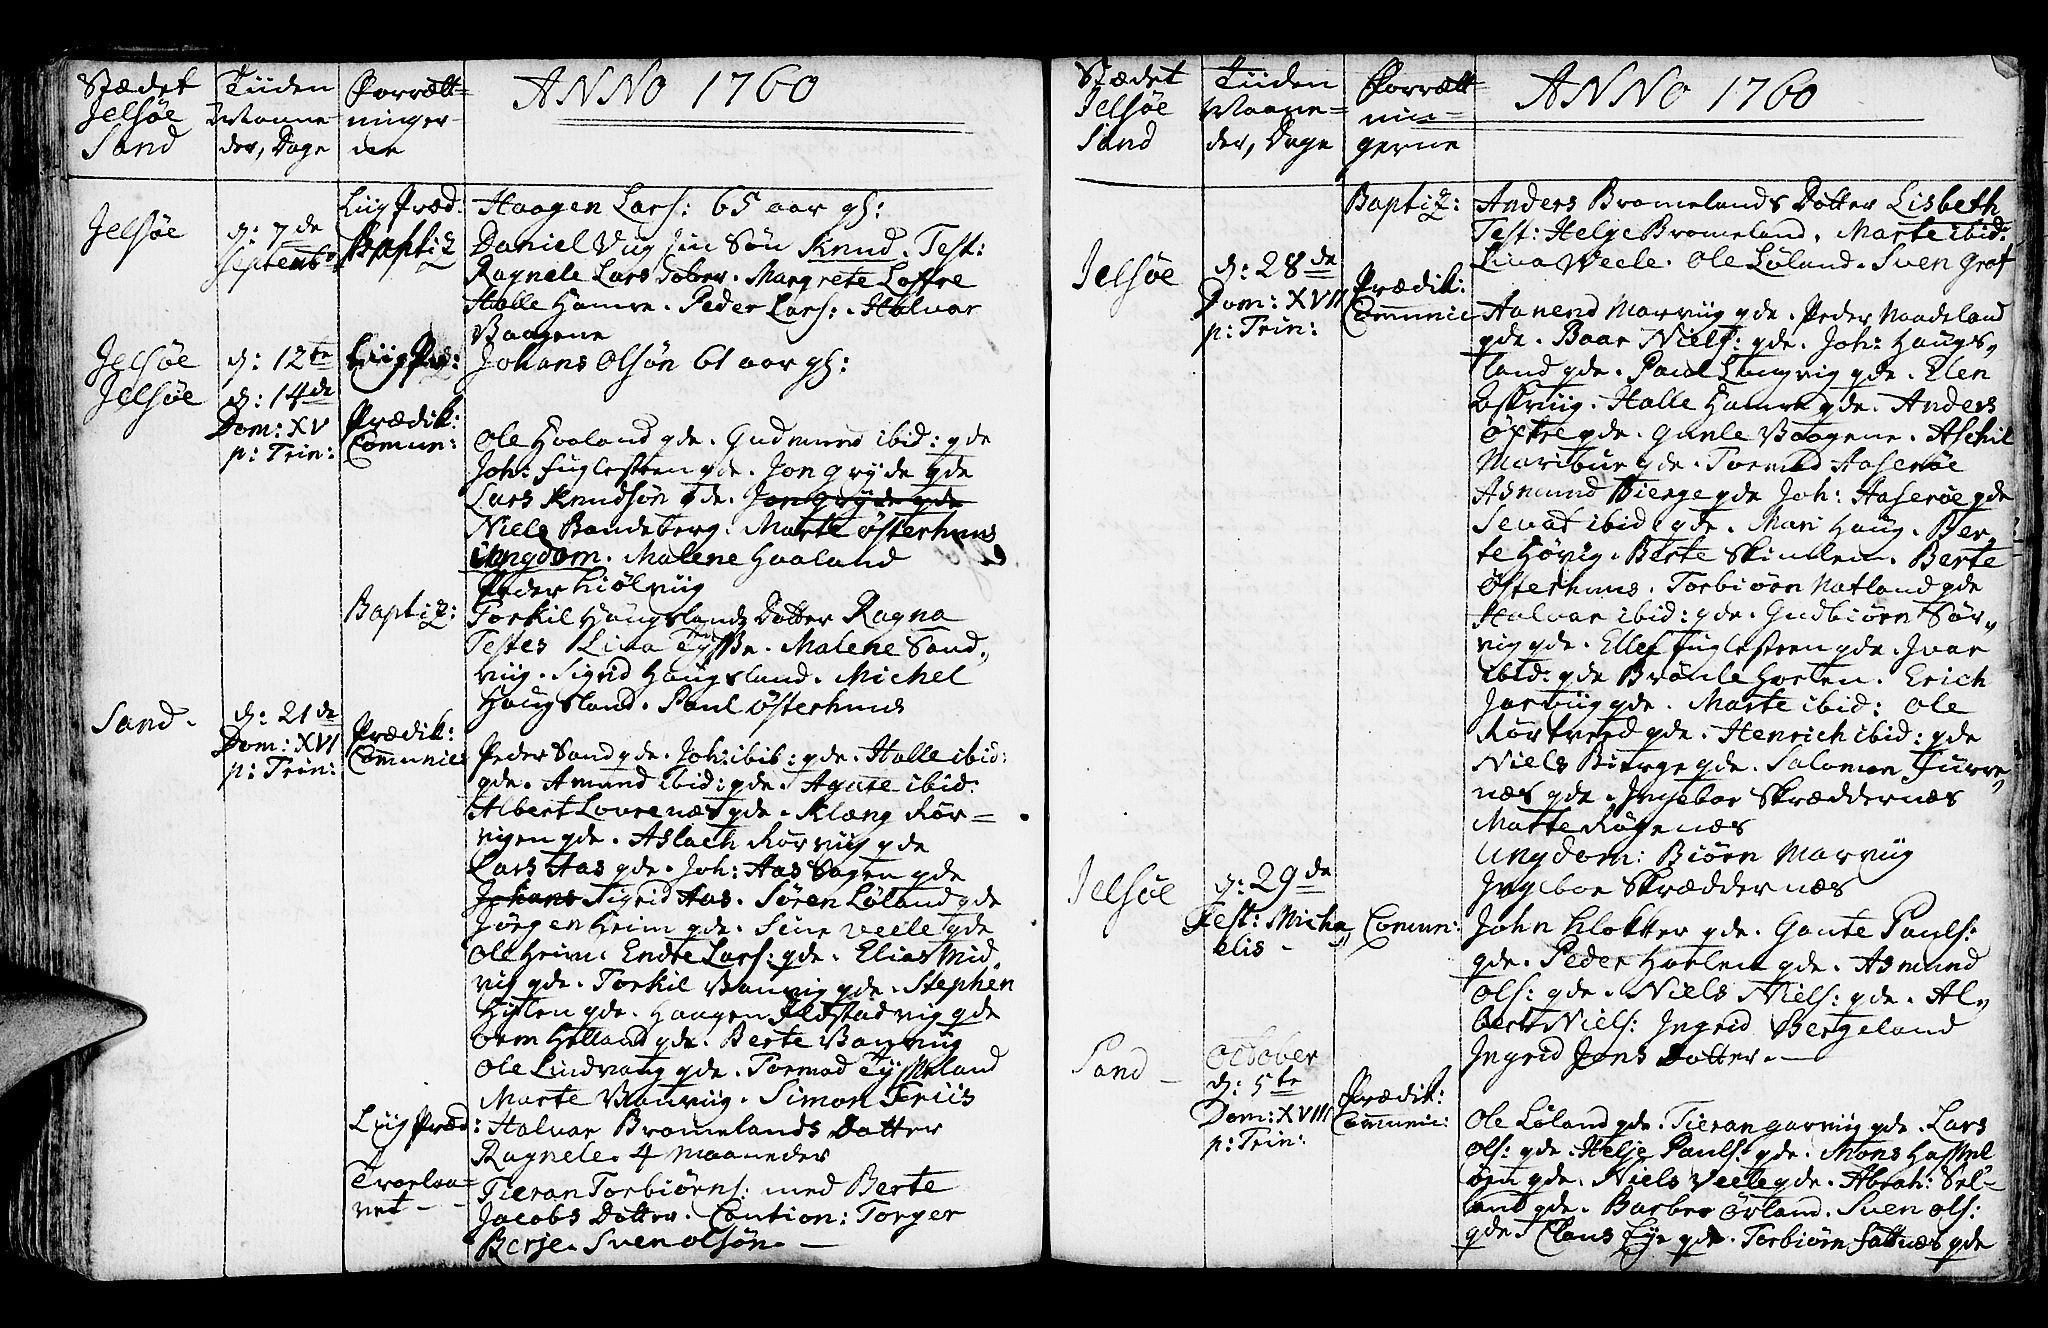 Stædet
Jelsøe
Sand
Tiiden
Maane-
der, Dage
Forrætt-
ninger-
ne
ANNO 1760
Jelsøe
d: 7de
Septemb:
Liig Præd.
Haagen Lars: 65 aar gl:
Baptiz
Daniel Vug sin Søn Knud. Test:
Ragnele Lars Dotter. Margrete Loffre
Halle Hamre. Peder Lars:. Halvar
Baagene
Jelsøe
d: 12te
Liig Præd:
Johans Olsøn 61 aar gl:
Jelsøe
d: 14de
Dom: XV
p: Trin:
Prædik:
Comun:
Ole Haaland gde. Gudmund ibid: gde
Joh: Fuglesteen gde. Jon Gryde gde
Lars Knudsøn gde. Jon Gryde gde
Niels Bandeberg. Marte Østerhuus
Ungdom. Malene Haaland
Peder Kiølviig
Baptiz:
Torkil Haugslands Dotter Ragna
Testes Liva Tysse. Malene Sand,,
viig. Sigrid Haugsland. Michel
Haugsland. Paul Østerhuus
Sand.
d: 21de
Dom: XVI
p: Trin:
Prædik:
Communic
Peder Sand gde. Joh: ibib: gde. Halle ibid:
gde. Amund ibid: gde. Agate ibid:
Albert Lovrenæs gde. Klæng Rør-
vigen gde. Aslach Rørviig gde
Lars Aas gde. Joh: Aas Bagen gde
Johans Sigrid Aas. Søren Løland gde
Jørgen Heim gde. Sine Veele gde
Ole Heim. Endre Lars: gde. Elias Mid,,
vig gde. Torkil Vanvig gde. Stephen
Hylen gde. Haagen Ildstadvig gde
Orm Helland gde. Berte Vanviig
Ole Lindvang gde. Tormod Tysseland
Marte Vanviig. Simon Friis
Liig Præd:
Halvar Bromelands Dotter
Ragnele. 4 Maaneder
Troelov-
vet--
Tieran Torbiørns: med Berte
Jacobs Dotter. Caution: Torger
Berje. Sven Olsøn.
Stædet
Jelsøe
Sand
Tiiden
Maane-
der, Dage
Forrætt
nin-
gerne
ANNO 1760
Baptiz:
Anders Bromelands Dotter Lisbeth
Test: Helje Bromeland. Marte ibid:
Liva Veele. Ole Løland. Sven Graf
Jelsøe
d: 28de
Dom: XVII
p: Trin:
Prædik:
Communic
Aanend Marviig gde. Peder Naadeland
gde. Baar Niels: gde. Joh: Haugs,,
land gde. Paul Lingvig gde. Elen
Halle Hamre gde. Anders
Øxtre gde. Gunle Baagene. Aschil
Maribue gde. Tormod Haserøe
Asmund Bierge gde Joh: Haserøe gde
Sevat ibid: gde. Mari Haug. Ber,,
te Høvig. Berte Skimlen. Berte
Østerhuus. Torbiørn Natland gde
Halvar ibid: gde. Gudbiørn Sør,,
vig gde. Ellef Fuglesteen gde. Ivar
ibid: gde Brønle Horten. Erich
Jarviig gde. Marte ibid: Ole
Kørtveed gde. Henrich ibid: gde
Niels Bierge gde. Salomon Turre,,
næs gde. Ingebor Skræddernæs
Marte Røgenæs
Ungdom: Biørn Marviig
Ingebor Skræddernæs
Jelsøe
d: 29de
Fest: Micha,,
elis-
Comun:
John Klokker gde. Gaute Pauls:
gde. Peder Hoelen gde. Asmund
Ols: gde. Niels Niels: gde. Al,,
bert Niels: Ingrid Bergeland
Ingrid Jens Dotter.-
Sand-
October
d: 5te
Dom: XVIII
p: Trin:
Prædik:
Communic:
Ole Løland gde. Tieran Garviig gde. Lars
Ols: gde. Helje Pauls: gde. Mons Hassel
øen gde. Niels Veele gde. Abrah: Sel-
land gde. Barbro Ørland. Sven Ols:
gde. Claus Eye gde. Torbiørn Fattnæs gde